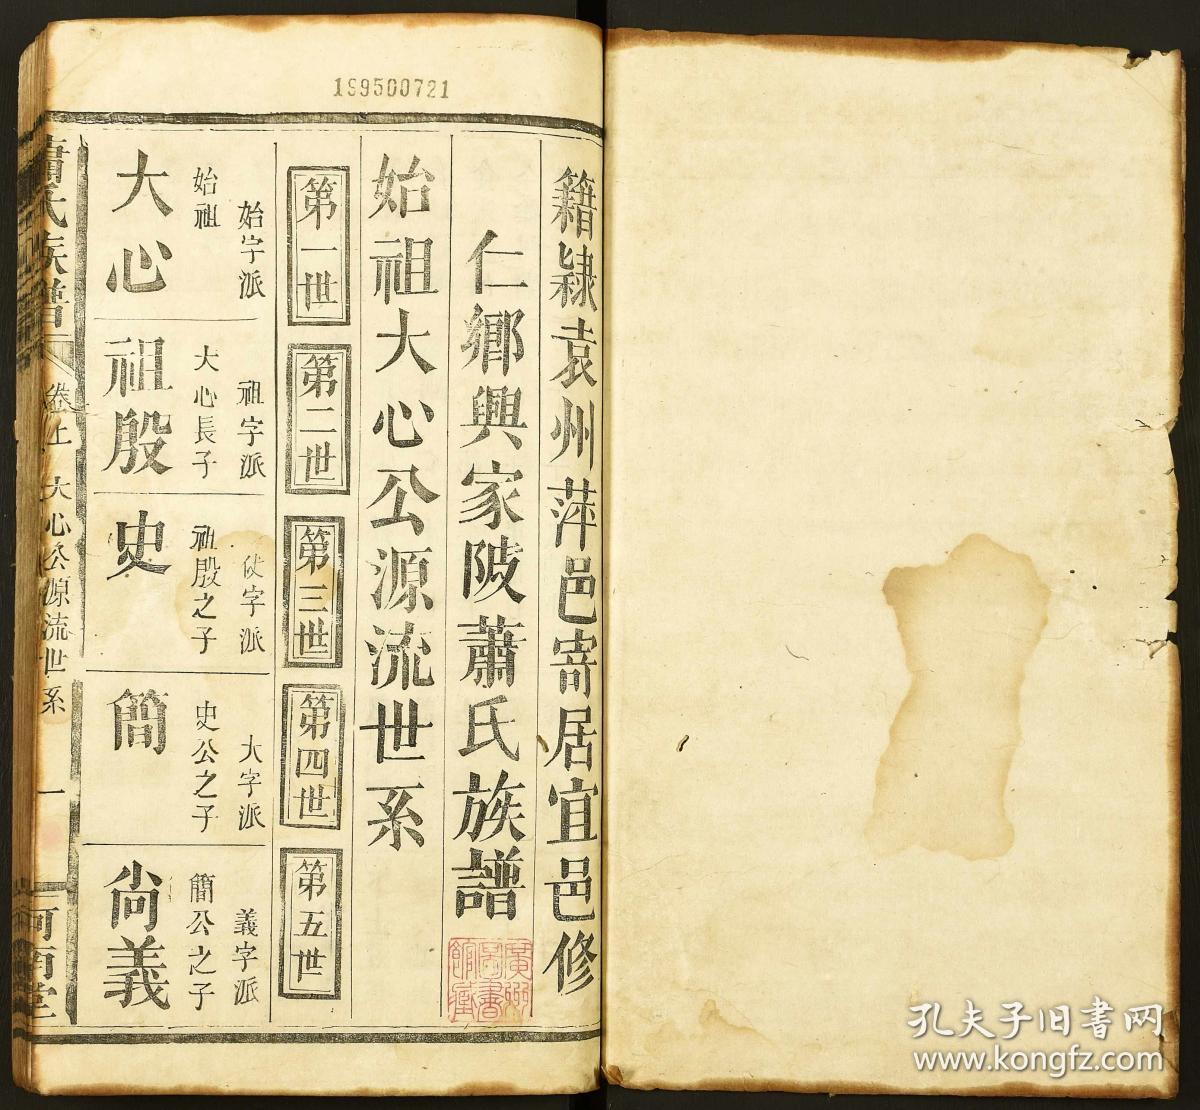 199500721
籍隸袁州萍邑寄居宜邑修
仁鄉興家陂蕭氏族譜
始祖大心公源流世系
第一世
第二世
第三世
第四世
第五世
始字派
始祖
大心
祖字派
大心長子
祖殷
史字派
祖殷之子
史
大字派
史公之子
簡
義字派
簡公之子
尙義
蕭氏族譜
卷上
大心公源流世系
一
河南堂
孔夫子旧書网
www.kongfz.com